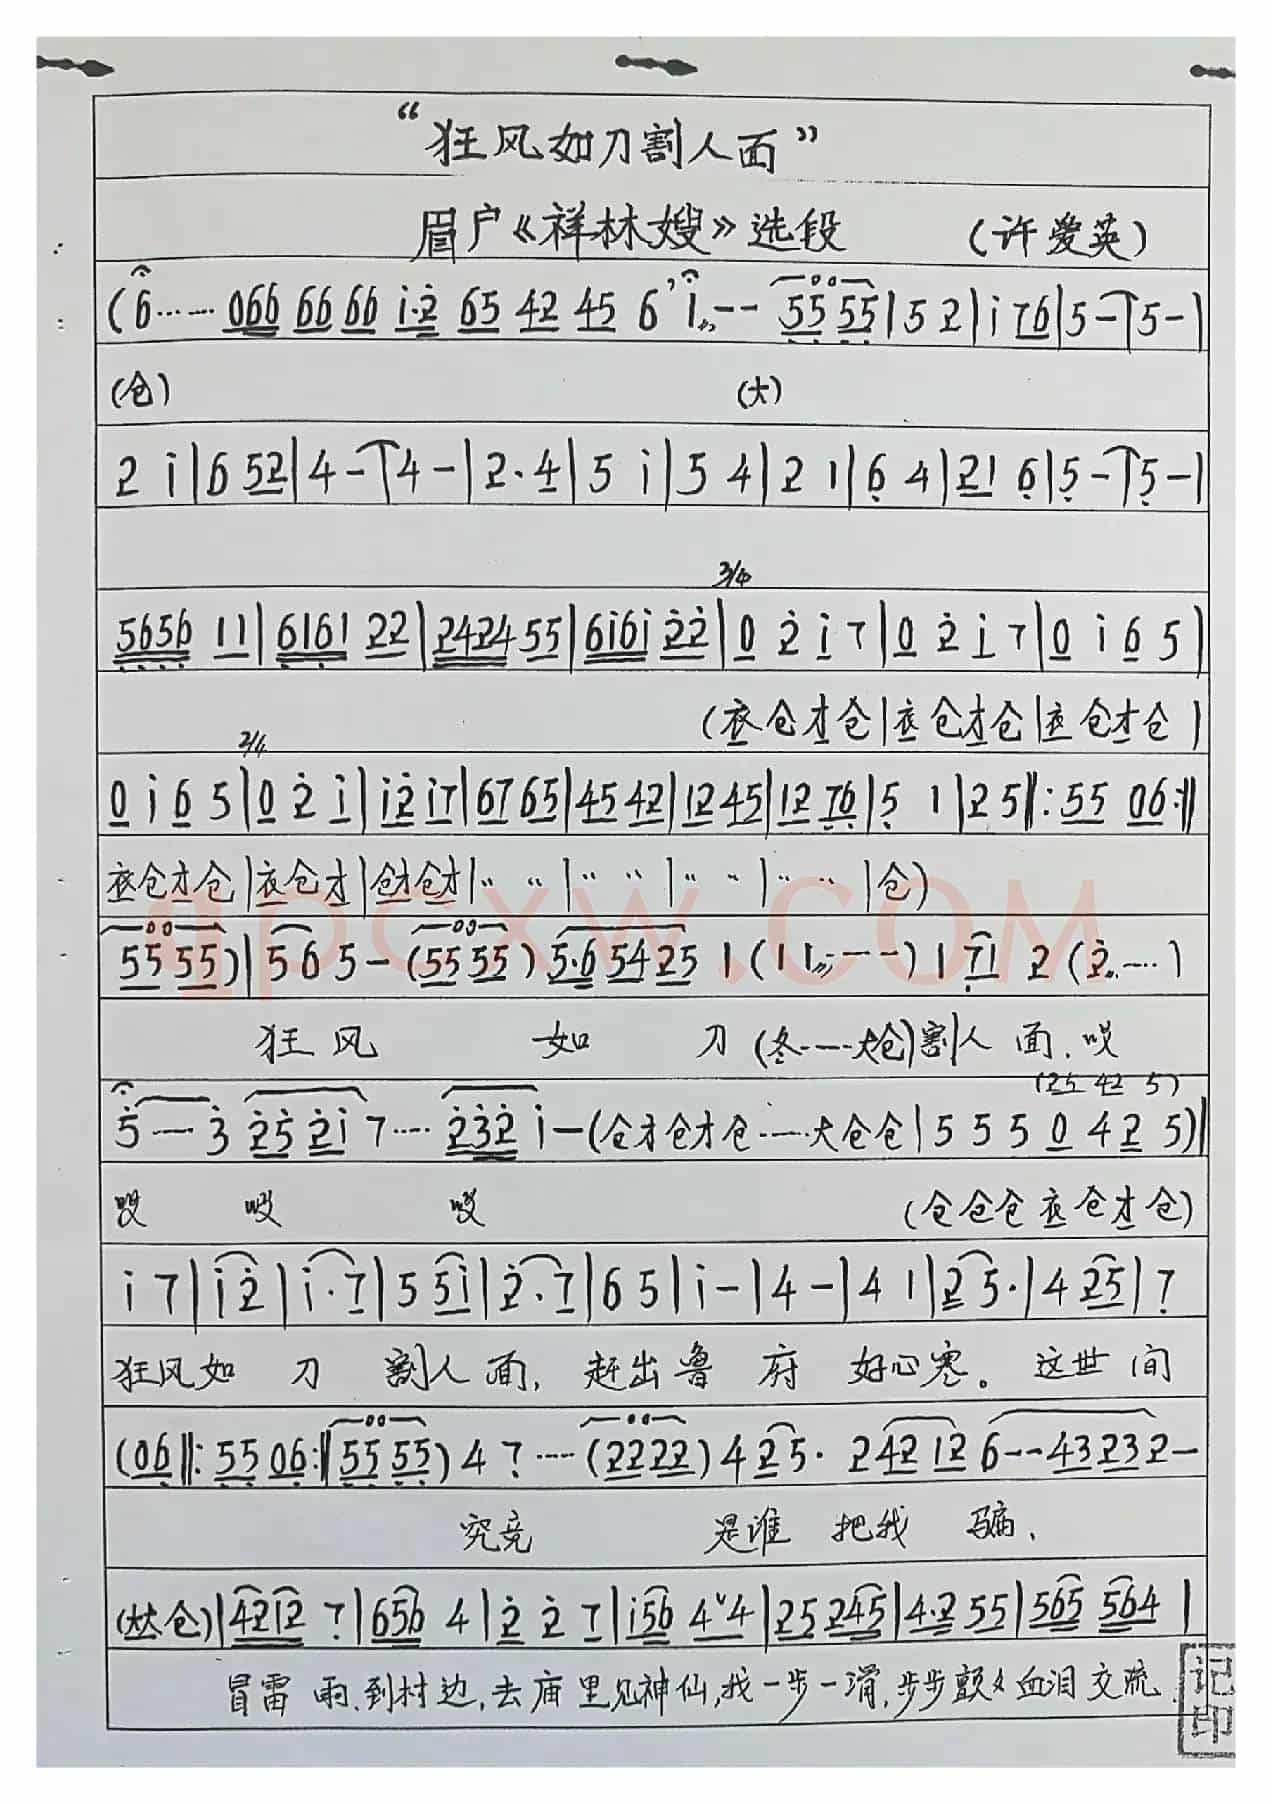 “狂风如刀割人面”
眉户《祥林嫂》选段 (许爱英)
(6······ 066 66 66 i·2 65 42 45 6 ’ i,,-- 55 55|5 2|i 76|5-|5-|
(仓) (大)
2 i|6 52|4-|4-|2·4|5 i|5 4|2 1|6 4|21 6|5-|5-|
3/4
5656 11|6161 22|2424 55|6i6i 22|0 2 i 7|0 2 i 7|0 i 6 5|
(衣仓才仓|衣仓才仓|衣仓才仓)
2/4
0 i 6 5|0 2 i|i2 i7|67 65|45 42|12 45|12 76|5 1|2 5‖:55 06:‖
衣仓才仓|衣仓才|仓才仓才|“ “|“ “|“ “|“ “|仓)
55 55)|5 6 5-(55 55) 5·6 54 25 1(11,,---) 1 71 2(2,,····)
狂风 如 刀(冬····大仓)割人 面.哎
(25 42 5)
5---3 25 21 7···· 232 i-(仓才仓才仓·····大仓仓|5 5 5 0 4 2 5)‖
哎 哎 哎 (仓仓仓衣仓才仓)
i 7|i 2|i·7|5 5i|2·7|6 5|i-|4-|4 1|2 5·|4 25|7
狂风如 刀 割人面, 赶出鲁 府 好心寒。这世间
(06‖:55 06:‖55 55) 4 7·····(2222) 4 25· 2 42 12 6--43 23 2-
究竟 是谁 把我 骗.
(丛仓)|4212 7|656 4|2 2 7|i56 4ˇ4|25 245|4·2 55|565 564|
冒雷 雨.到村边,去庙里见神仙,我一步一滑,步步颤々血泪交流
记
印
qpcxw.COM